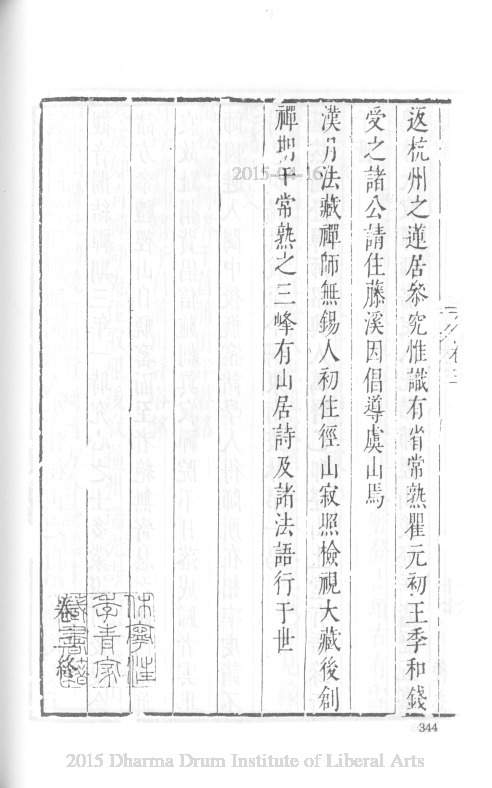 返杭州之蓮居參究惟識有省常熟瞿元初王季和錢
受之諸公請住藤溪因倡導虞山焉
漢月法藏禪師無錫人初住徑山寂照檢視大藏後創
禪期于常熟之三峰有山居詩及諸法語行于世
休寧汪
季青家
藏書籍
卷終
344
2015 Dharma Drum Institute of Liberal Arts